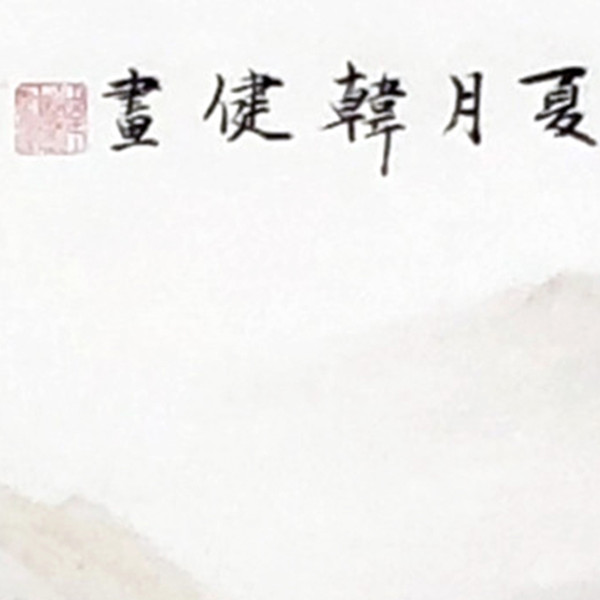 夏月韓健畫